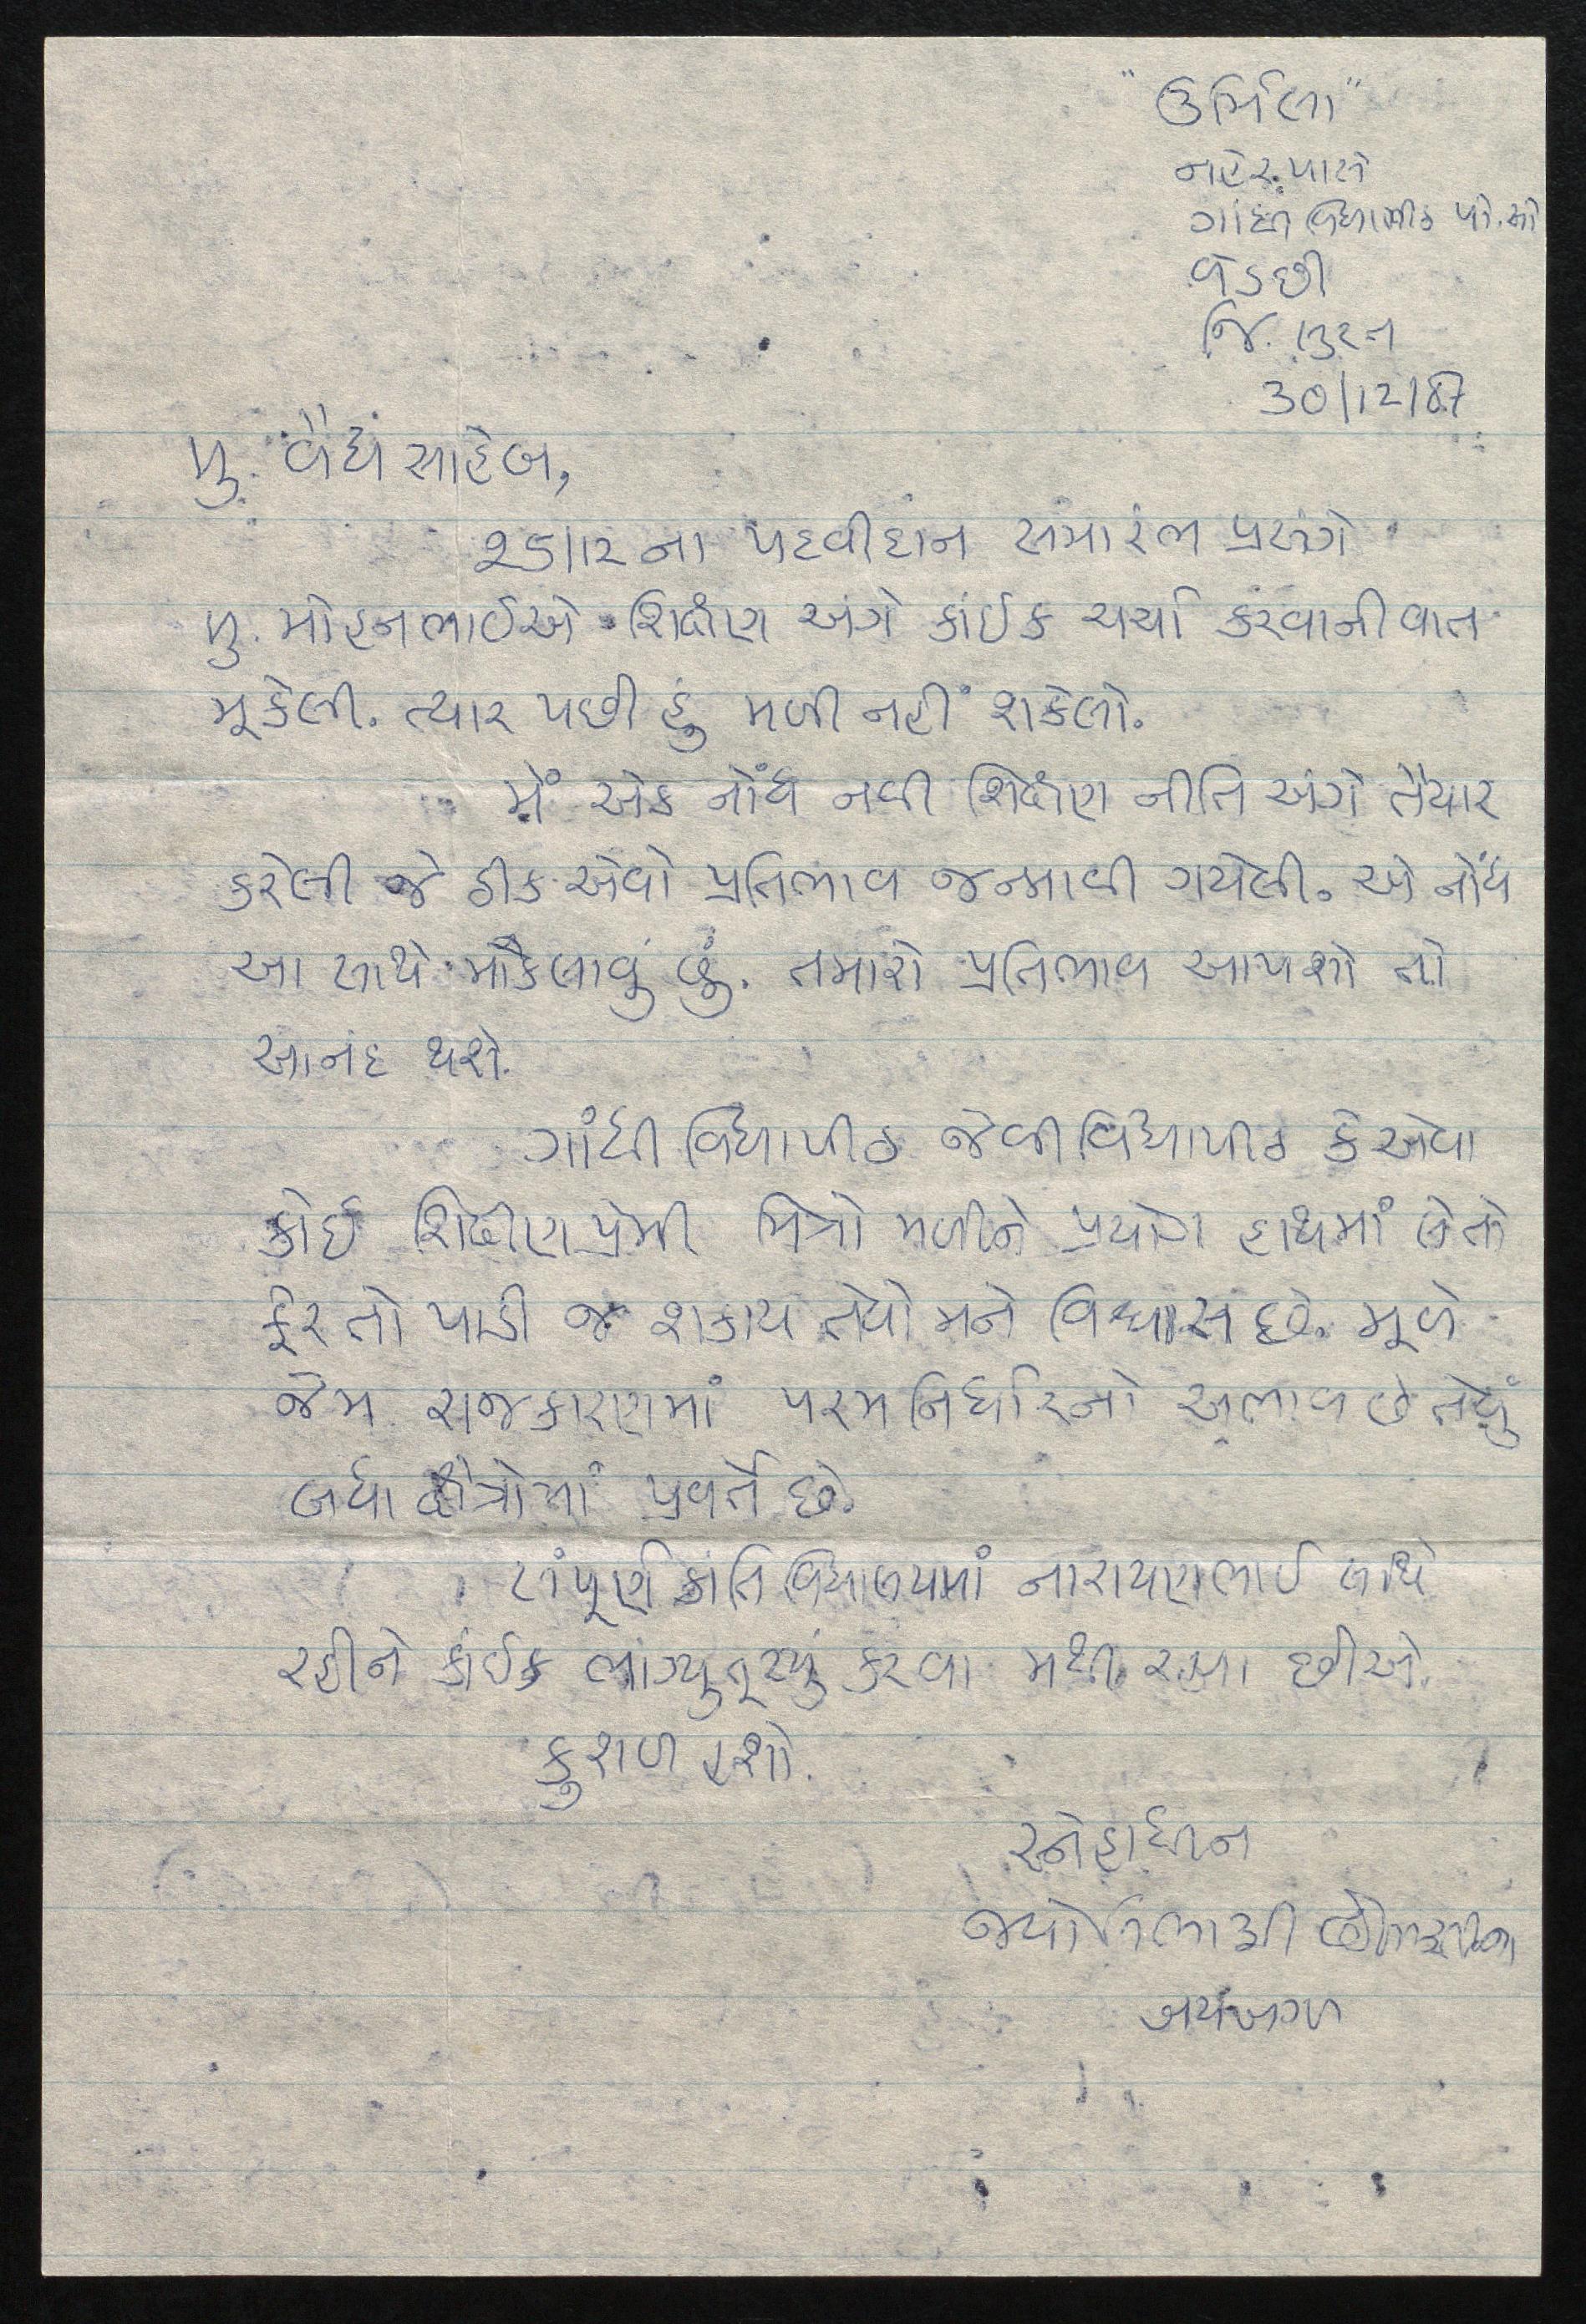 "ઉર્મિલા"
નહેરુ પાસે
ગાંધી વિદ્યાપીઠ પો.ઓ
વેડછી
જિ. સુરત
30/12/87
મુ. વૈદ્ય સાહેબ,
25/12 ના પદવીદાન સમારંભ પ્રસંગે
મુ. મોહનભાઈએ શિક્ષણ અંગે કાંઈક ચર્ચા કરવાની વાત
મૂકેલી. ત્યાર પછી હું મળી નહીં શકેલો.
મેં એક નોંધ નવી શિક્ષણ નીતિ અંગે તૈયાર
કરેલી જે ઠીક એવો પ્રતિભાવ જન્માવી ગયેલી. એ નોંધ
આ સાથે મોકલાવું છું. તમારો પ્રતિભાવ આપશો તો
આનંદ થશે.
ગાંધી વિદ્યાપીઠ જેવી વિદ્યાપીઠ કે એવા
કોઈ શિક્ષણપ્રેમી મિત્રો મળીને પ્રયોગ હાથમાં લે તો
ફેર તો પાડી જ શકાય તેવો મને વિશ્વાસ છે. મૂળે
જેમ રાજકારણમાં પરમ નિર્ધારનો અભાવ છે તેવું
બધા ક્ષેત્રોમાં પ્રવર્તે છે.
સંપૂર્ણ ક્રાંતિ વિદ્યાલયમાં નારાયણભાઈ સાથે
રહીને કાંઈક ભાંગ્યુ તૂટ્યું કરવા મથી રહ્યા છીએ.
કુશળ હશો.
સ્નેહાધીન
જ્યોતિભાઈ